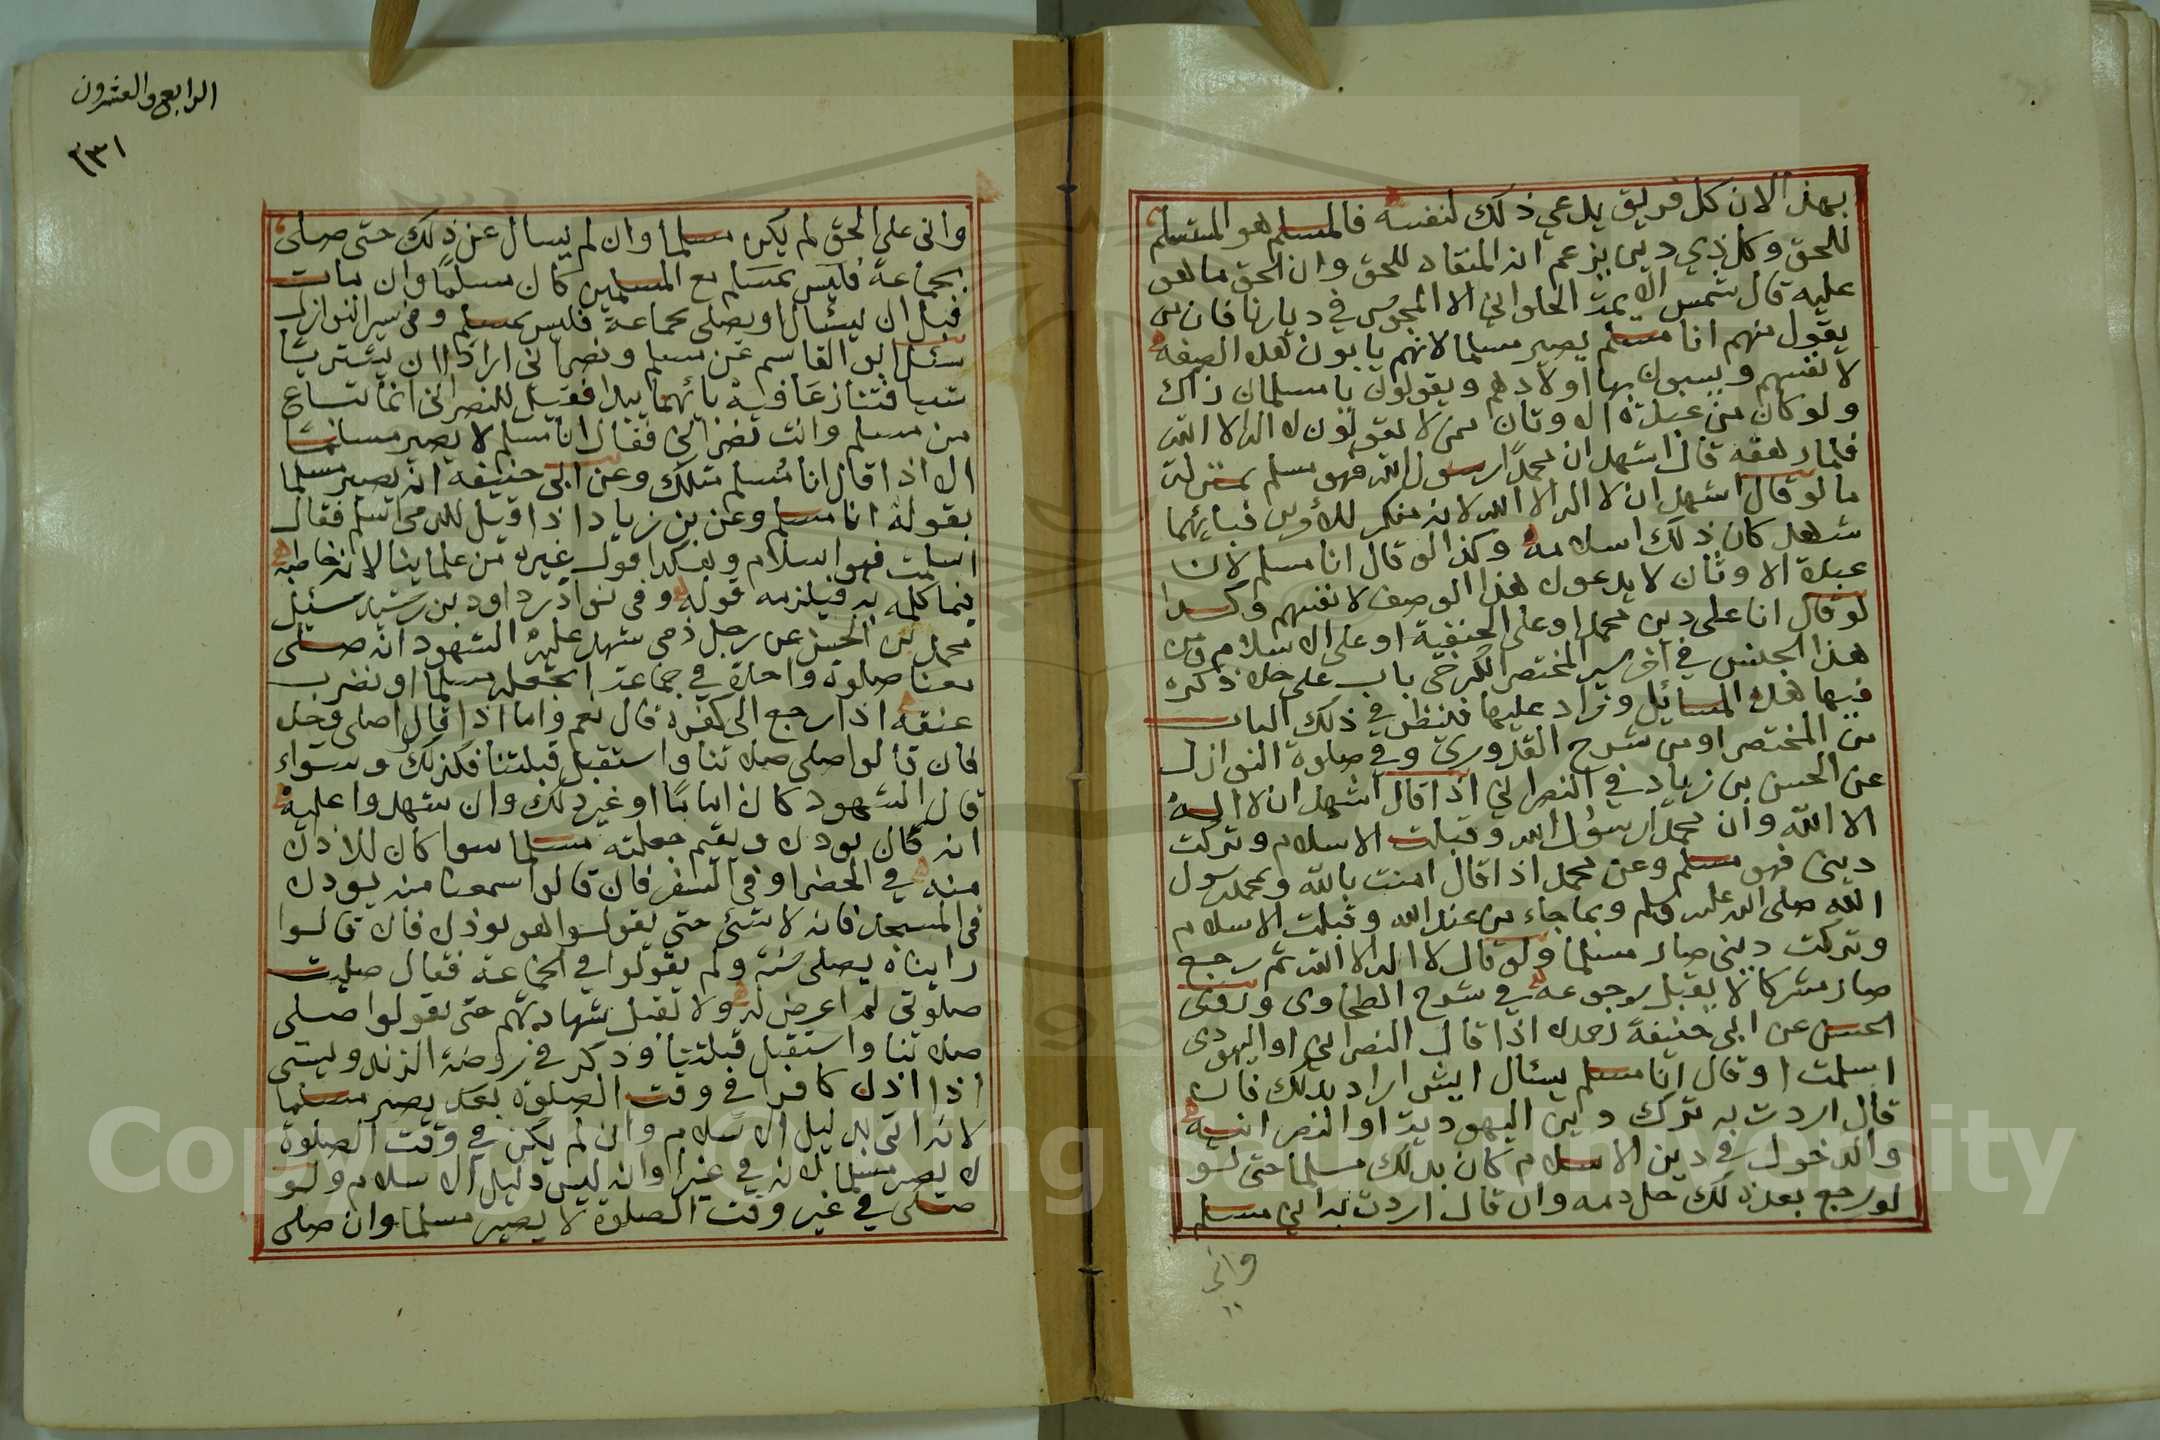 بهذا لان كل فريق يدعي ذلك لنفسه فالمسلم هو المستسلم
للحق وكل ذي دين يزعم انه المنقاد للحق وان الحق ما هو
عليه قال شمس الايمة الحلواني الا المجوس في ديارنا فان من
يقول منهم انا مسلم يصير مسلما لانهم يابون هذه الصفة
لانفسهم ويسبون بها اولادهم ويقولون يا مسلمان زاك
ولو كان من عبدة الاوثان ممن لا يقولون لا اله الا الله
فلما رهقه قال اشهد ان محمدًا رسول الله فهو مسلم بمنزلة
ما لو قال اشهد ان لا اله الا الله لانه منكر للامرين فبايهما
شهد كان ذلك اسلامه وكذا لو قال انا مسلم لان
عبدة الاوثان لا يدعون هذا الوصف لانفسهم وكذا
لو قال انا على دين محمد او على الحنفية او على الاسلام ومن
هذا الجنس في اخر سير المختصر الكرخي باب على حده ذكره
فيها هذه المسائل وزاد عليها فلينظر في ذلك الباب
من المختصر او من شرح القدوري وفي صلوة النوازل
عن الحسن بن زياد في النصراني اذا قال اشهد ان لا اله
الا الله وان محمدا رسول الله وقبلت الاسلام وتركت
ديني فهو مسلم وعن محمد اذا قال امنت بالله وبمحمد رسول
الله صلى الله عليه وسلم وبما جاء من عند الله وقبلت الاسلام
وتركت ديني صار مسلما ولو قال لا اله الا الله ثم رجع
صار مشركا لا يقبل رجوعه في شرح الطحاوى وروى
الحسن عن ابي حنيفة رحمه اذا قال النصراني او اليهودى
اسلمت او قال انا مسلم يسئال ايش اراد بذلك فان
قال اردت به ترك دين اليهودية او النصرانية
والدخول في دين الاسلام كان بذلك مسلما حتى لو
لو رجع بعد ذلك حل دمه وان قال اردت به اني مسلم
واني
الرابع والعشرون
٢٣١
واني على الحق لم يكن مسلما وان لم يسال عن ذلك حتى صلى
بجماعة فليس بمسلم مع المسلمين كان مسلمًا وان مات
قبل ان يسئال او يصلى بجماعة فليس بمسلم وفي سير النوازل
سئل ابو القاسم عن مسلم ونصراني ارادا ان يشتريا
شيا فتنازعا فيه بايهما يبدا فقيل للنصراني انما تباع
من مسلم وانت نصراني فقال انا مسلم لا يصير مسلما
الا اذا قال انا مُسلم مثلك وعن ابي حنيفه انه يصير مسلما
بقوله انا مسلم وعن بن زياد اذا قيل للذمي اسلم فقال
اسلمت فهو اسلام وهكذا قول غيره من علماينا لانه خاطبه
بما كلمه به فيلزمه قوله وفي نوادر داود بن رشيد سئيل
محمد بن الحسن عن رجل ذمي شهد عليه الشهود انه صلى
معنا صلوة واحدة في جماعة اتجعله مسلما او نضرب
عنقه اذا رجع الى كفره قال نعم واما اذا قال اصلى وحده
فان قالوا صلى صلاتنا واستقبل قبلتنا فكذلك وسواء
قال الشهود كان اماما او غير ذلك وان شهدوا عليه
انه كان يوذن ويقيم جعلته مسلما سوا كان للاذان
منه في الحضر او في السفر فان قالوا سمعنا منه يوذن
في المسجد فانه لا شئ حتى يقولوا هو يوذن فان قالوا
رايناه يصلى سنة ولم يقولوا في الجماعة فقال صليت
صلوتي لم اعرض له ولا تقبل شهادتهم حتى يقولوا صلى
صلاتنا واستقبل قبلتنا وذكر في روضة الزندويستى
اذا اذن كافر في وقت الصلوة بعد يصير مسلما
لانه اتى بدليل الاسلام وان لم يكن في وقت الصلوة
لا يصير مسلما لانه في غير اوانه ليس دليل الاسلام ولو
صلى في غير وقت الصلوة لا يصير مسلما وان صلى
Copyright © King Saud University